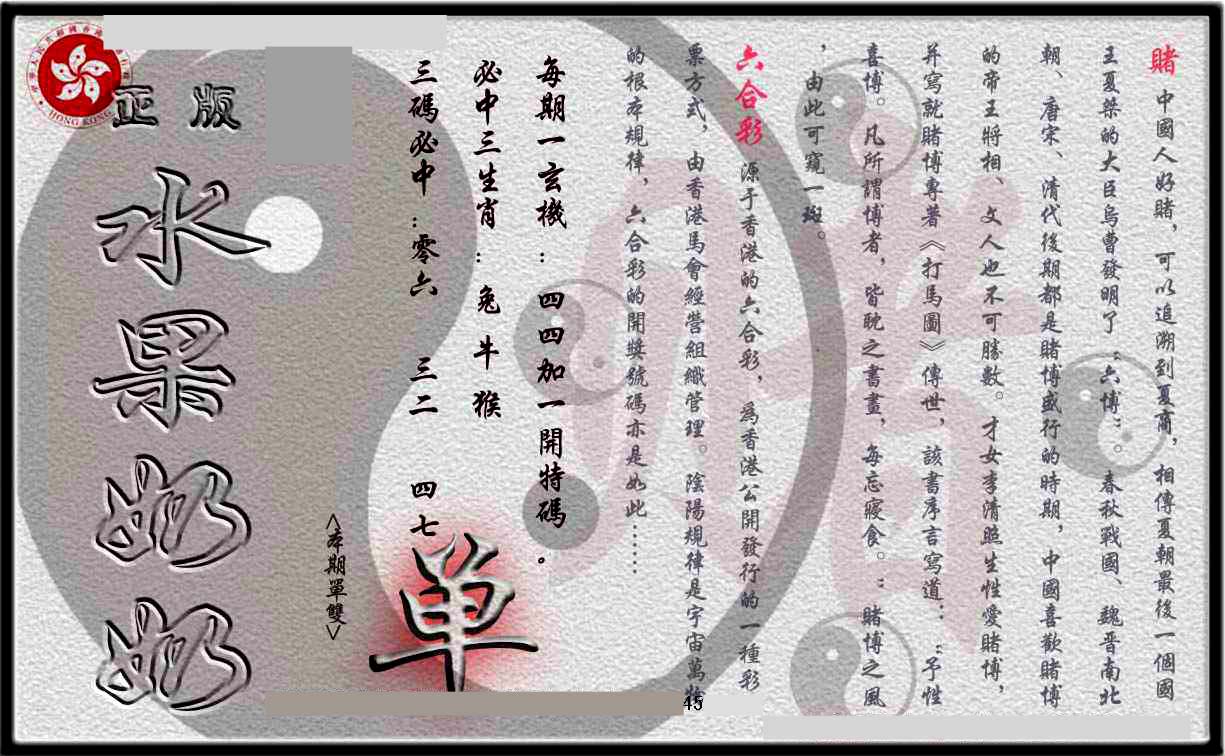 賭 中國人好賭，可以追溯到夏商，相傳夏朝最後一個國
王夏桀的大臣烏曹發明了“六博”。春秋戰國、魏晋南北
朝、唐宋、清代後期都是賭博盛行的時期，中國喜歡賭博
的帝王將相、文人也不可勝數。才女李清照生性愛賭博，
并寫就賭博專著《打馬圖》傳世，該書序言寫道：“予性
喜博。凡所謂博者，皆耽之書畫，每忘寢食。”賭博之風
，由此可窺一斑。
六合彩 源于香港的六合彩，爲香港公開發行的一種彩
票方式，由香港馬會經營組織管理。陰陽規律是宇宙萬物
的根本規律，六合彩的開獎號碼亦是如此……
每期一玄機：四四加一開特碼。
必中三生肖：兔 牛 猴
三碼必中：零六 三二 四七
单
<本期單雙>
正版
水果奶奶
HONG KONG
45